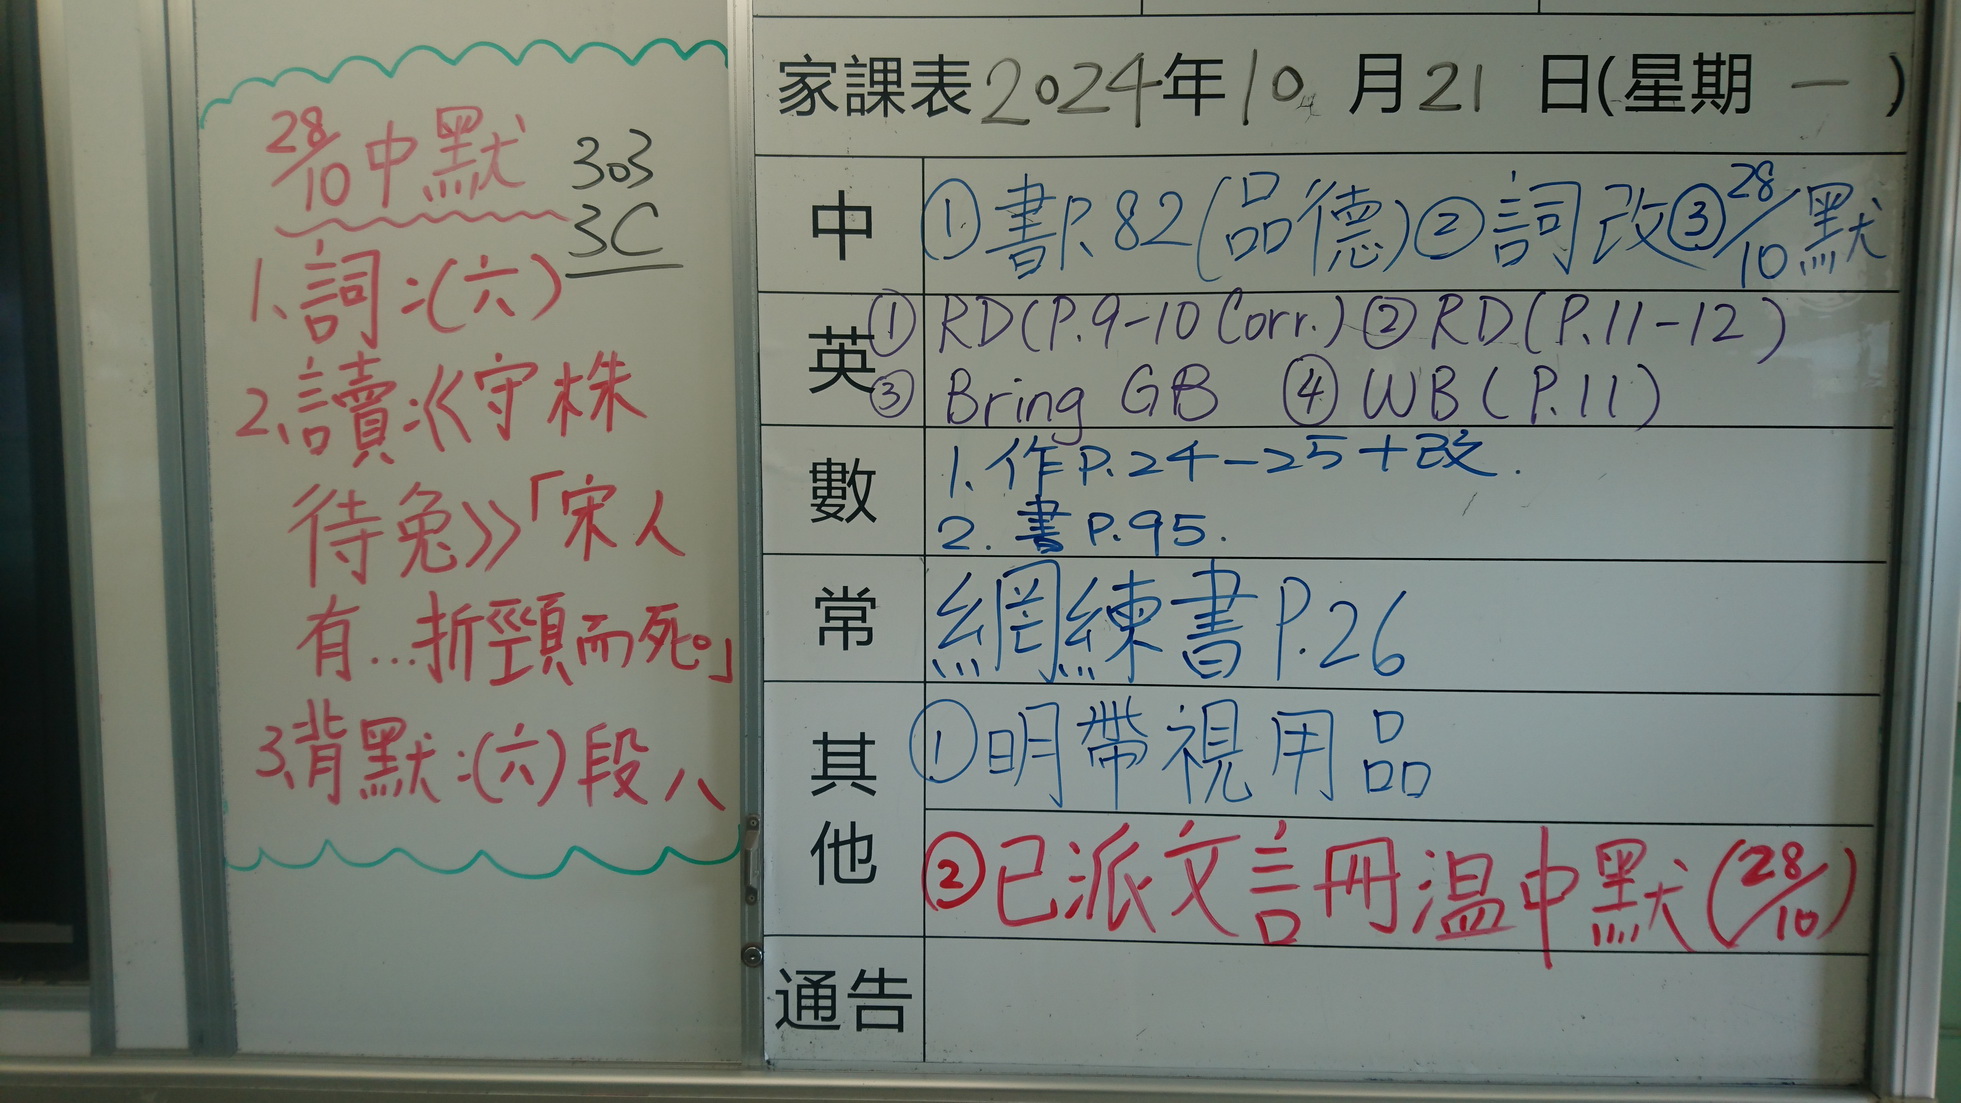 28/10 中默
303
3C
1、詞:(六)
2、讀:《守株
待兔》「宋人
有…折頸而死。」
3、背默:(六)段八
家課表2024年10月21日(星期一)
中
①書P.82(品德)②詞改③28/10默
英
①RD(P.9-10 Corr.)②RD(P.11-12)
③Bring GB ④WB(P.11)
數
1.作P.24-25+改.
2.書P.95.
常
網練書P.26
其他
①明帶視用品
②已派文言冊溫中默(28/10)
通告